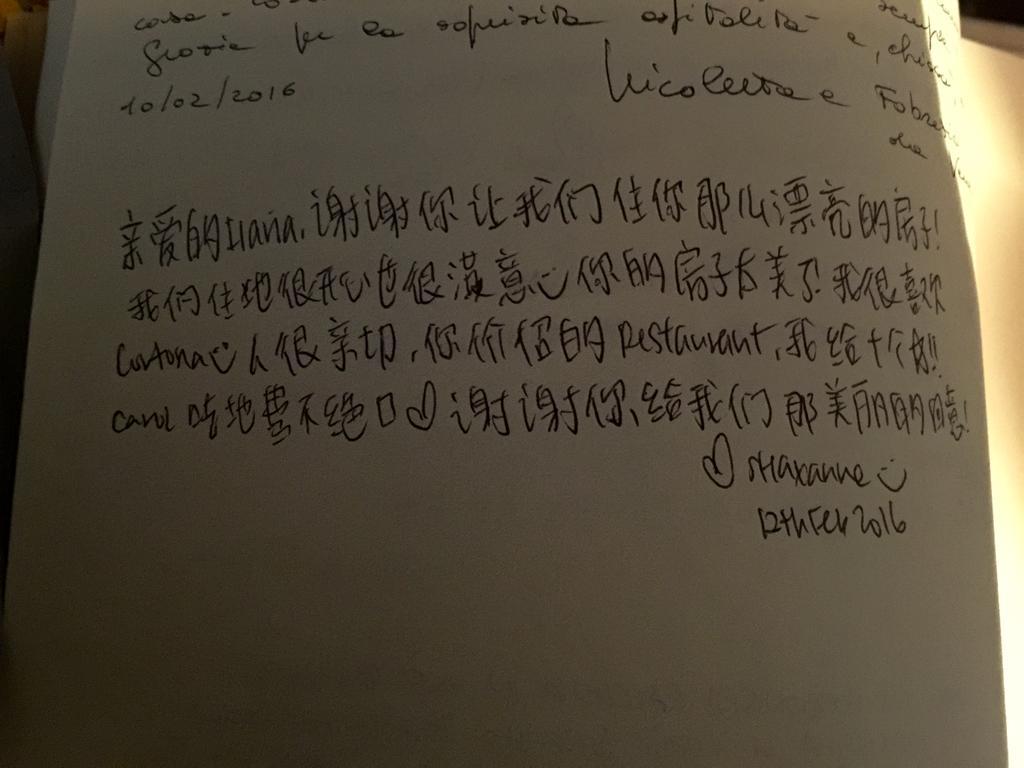 casa -
Grazie per la squisita ospitalità e, chissà
10/02/2016
Nicoletta e
亲爱的Ilaria,谢谢你让我们住你那么漂亮的房子!
我们住地很开心也很满意 你的房子太美了 我很喜欢
Cortona 人很亲切,你介绍的 Restaurant,我给十个为!!
Carol 吃地赞不绝口 谢谢你,给我们那美丽的回忆!
12th Feb 2016